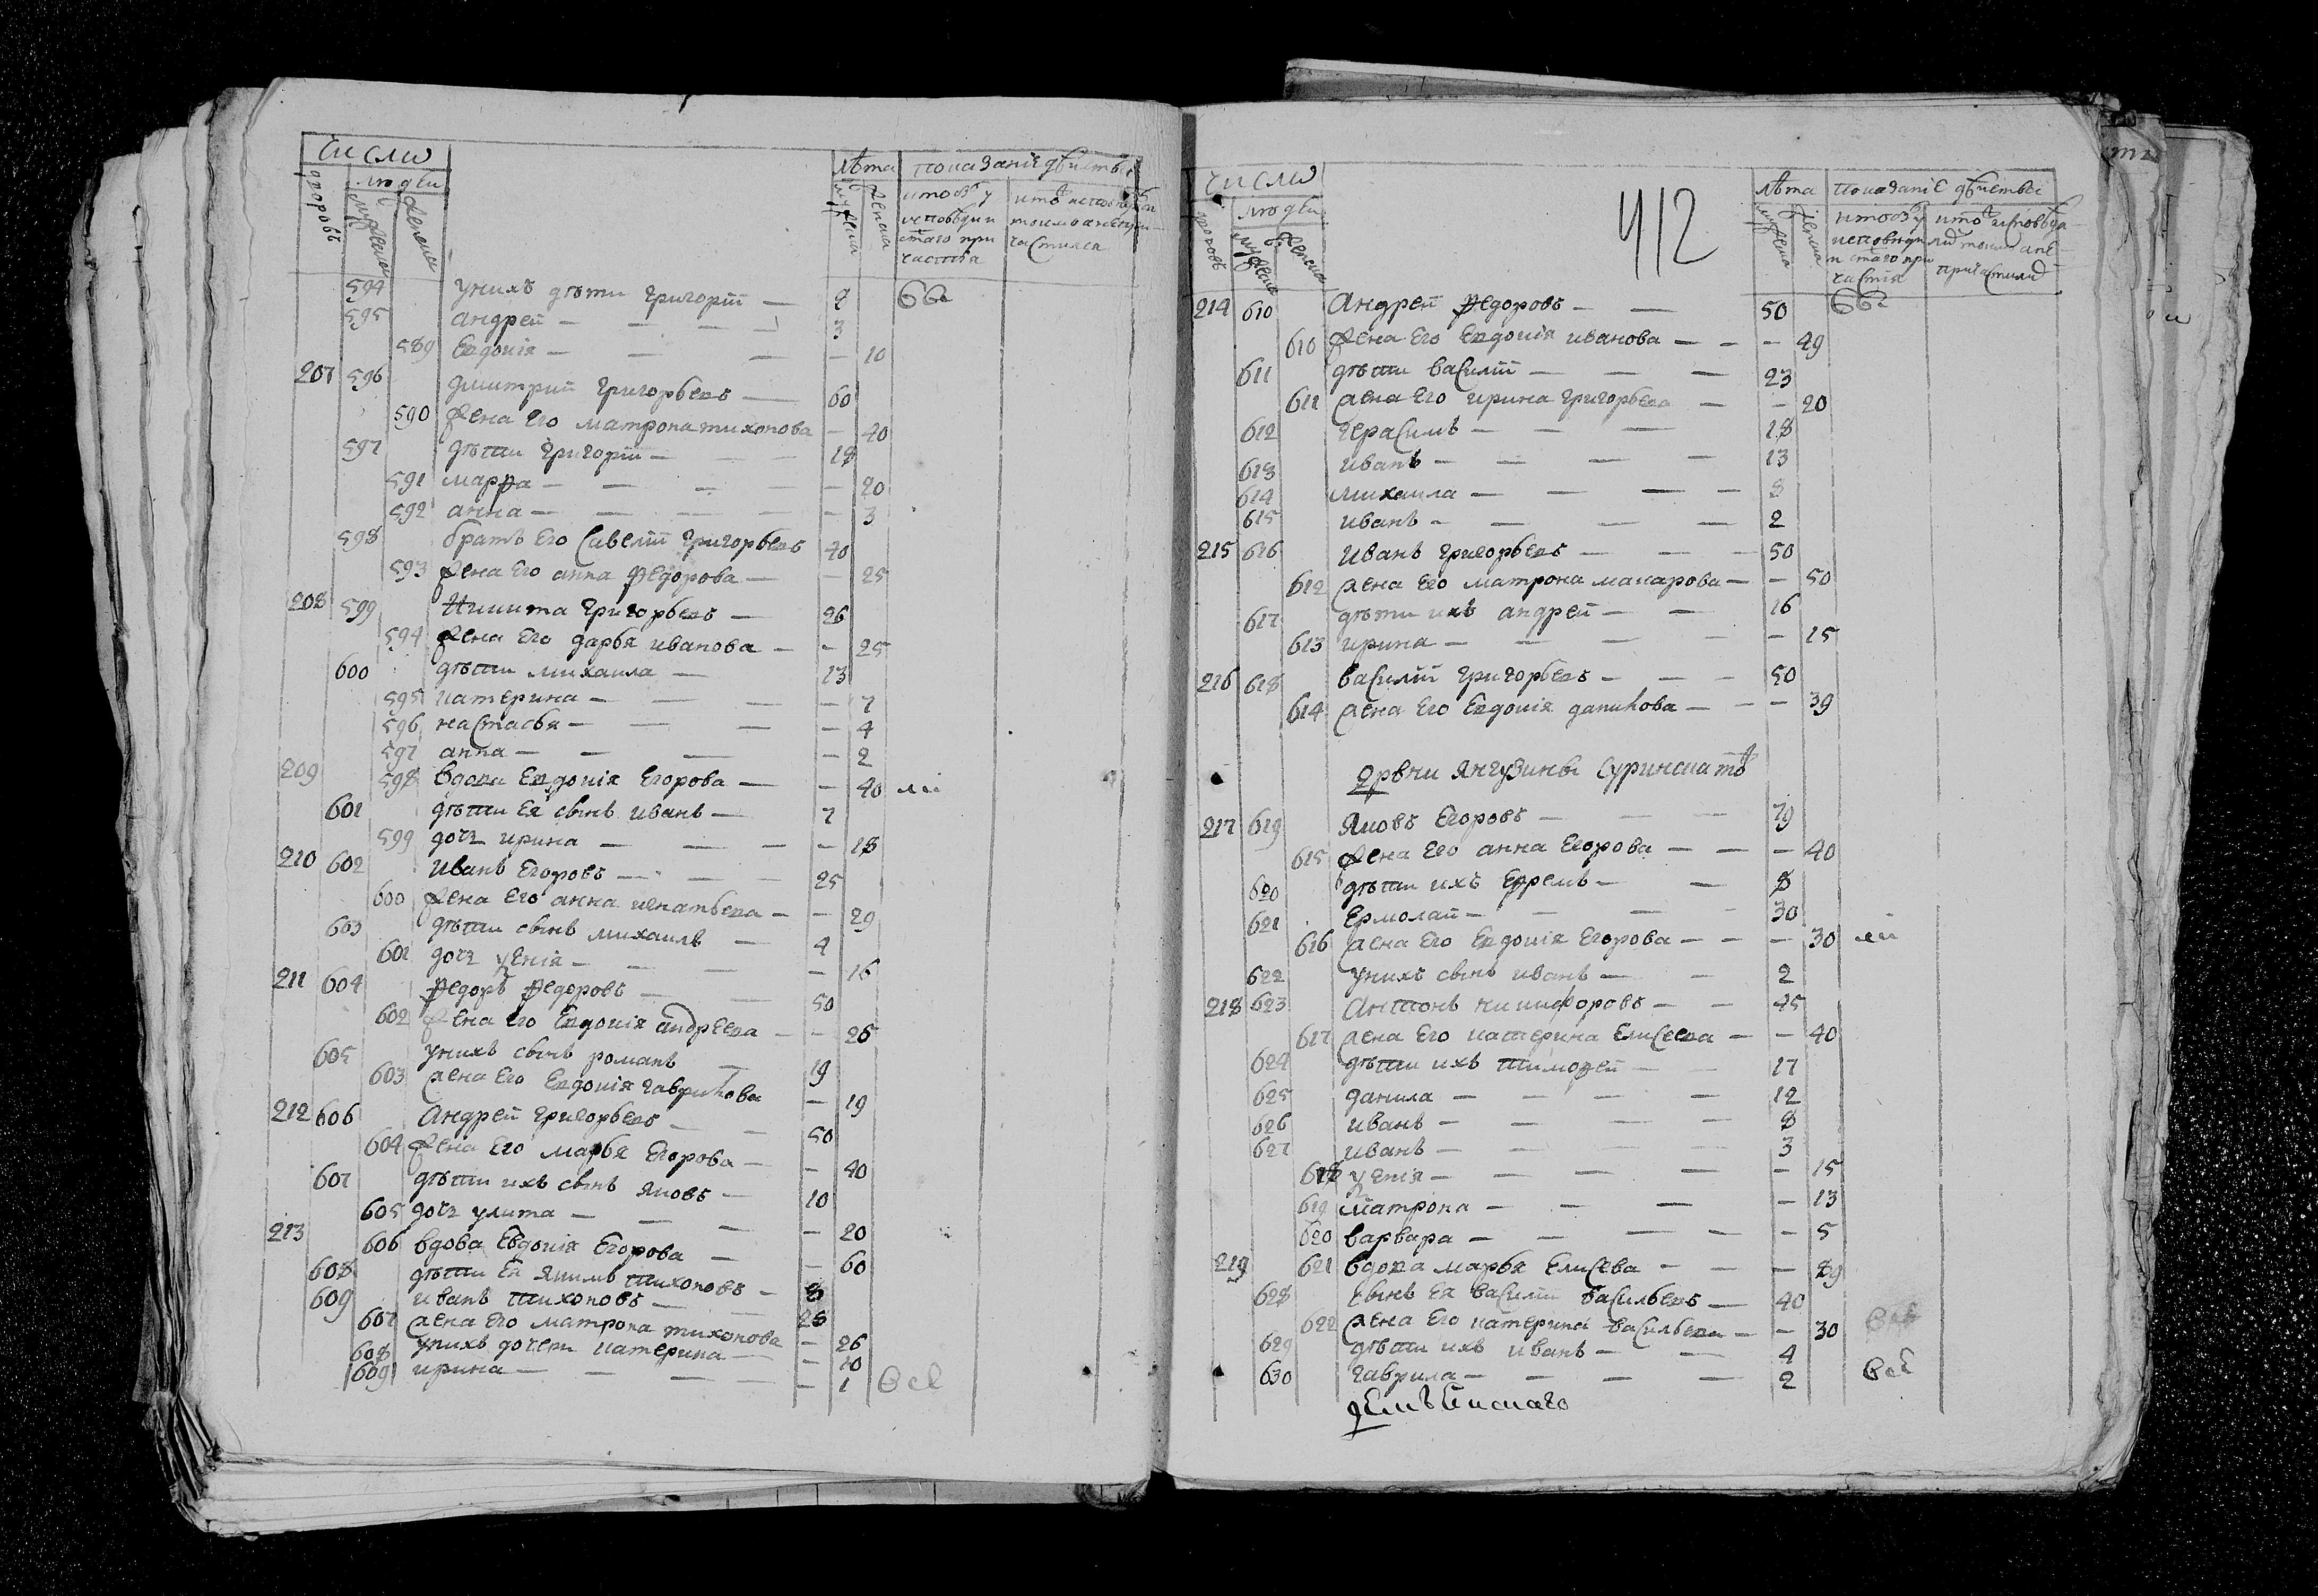 число
людеи
дворовъ мужеска женска
лѣта
мужеска женска
показанiе дѣиства
кто былъ у исповѣди и с̃таго причастiя
594 у нихъ дѣти григории — 8
595 андреи — — — — 3
589 Евдокiя — — — — 10
207 596 дмитрии григорьевъ — 60
590 жена Его матрона тихонова — 40
597 дѣти григории — — — 18
591 марфа — — — — — 20
592 анна — — — — — 3
598 братъ Его Савелии григорьевъ 40
593 жена Его анна федорова — — 25
208 599 Никита григорьевъ — 26
594 жена Его дарья иванова — — 25
600 дѣти михаила — 13
595 катерина — — — — 7
596 настасья — — — — 4
597 анна — — — — 2
209 598 вдова Евдокiя Егорова — — 40
601 дѣти Ея сынъ иванъ — 7
599 дочь ирина — — — — 18
210 602 иванъ Егоровъ — — — 25
600 жена Его анна игнатьева — — 29
603 дѣти сынъ михаилъ — 4
601 дочь — — — — 16
211 604 федоръ федоровъ — — 50
602 жена Его Евдокiя андреева — — 26
605 у нихъ сынъ романъ — 19
603 жена Его Евдокiя гаврилова — 19
212 606 Андреи григорьевъ — — 50
604 жена Его марья Егорова — — 40
607 дѣти ихъ сынъ яковъ — 10
605 дочь улита — — — — 20
213 606 вдова Евдокiя Егорова — — 60
608 дѣти Ея якимъ тихоновъ — 8
609 иванъ тихоновъ — — 26
607 жена Его матрона тихонова — 26
608 у нихъ дочери катерина — — 10
609 ирина — — — — — 1 всѣ
412
число
людеи
дворовъ мужеска женска
лѣта
мужеска женска
показанiе дѣиства
214 610 Андреи федоровъ — — 50
610 жена Его Евдокiя иванова — — — 49
611 дѣти василии — — — 23
611 жена Его ирина григорьева — — 20
612 герасимъ — — — 18
613 иванъ — — — — 13
614 михаила — — — — 8
615 иванъ — — — — 2
215 616 иванъ григорьевъ — — — 50
612 жена Его матрона макарова — — 50
617 дѣти ихъ андреи — — 16
613 ирина — — — — — 15
216 618 василии григорьевъ — — — 50
614 жена Его Евдокiя данилова — — — 39
дрвни янгузины Суринска тѣ
217 619 яковъ Егоровъ — — — 79
615 жена Его анна Егорова — — — 40
620 дѣти ихъ Ефремъ — — 8
621 Ермолаи — — — — 30
616 жена Его Евдокiя Егорова — — — 30
622 у нихъ сынъ иванъ — — 2
218 623 Антонъ никифоровъ — — 45
617 жена Его катерина Елисеева — — 40
624 дѣти ихъ тимофеи — — 17
625 данила — — — — 12
626 иванъ — — — — 8
627 иванъ — — — — 3
618 — — — — — 15
619 матрона — — — — 13
620 варвара — — — — — 5
219 621 вдова марья Елисева — — — 89
628 сынъ Ея василии васильевъ — 40
622 жена Его катерина васильева — — 30
629 дѣти ихъ иванъ — — 4
630 гаврила — — — — 2 всѣ